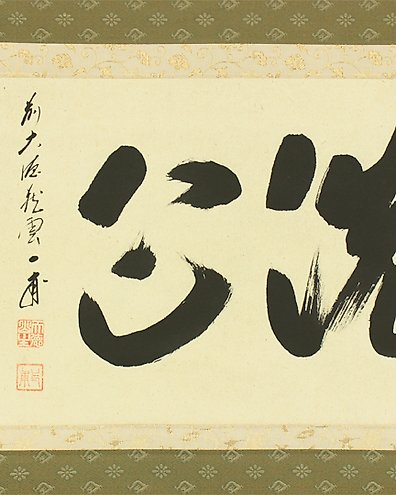 洗心
前大徳龍雲一甫